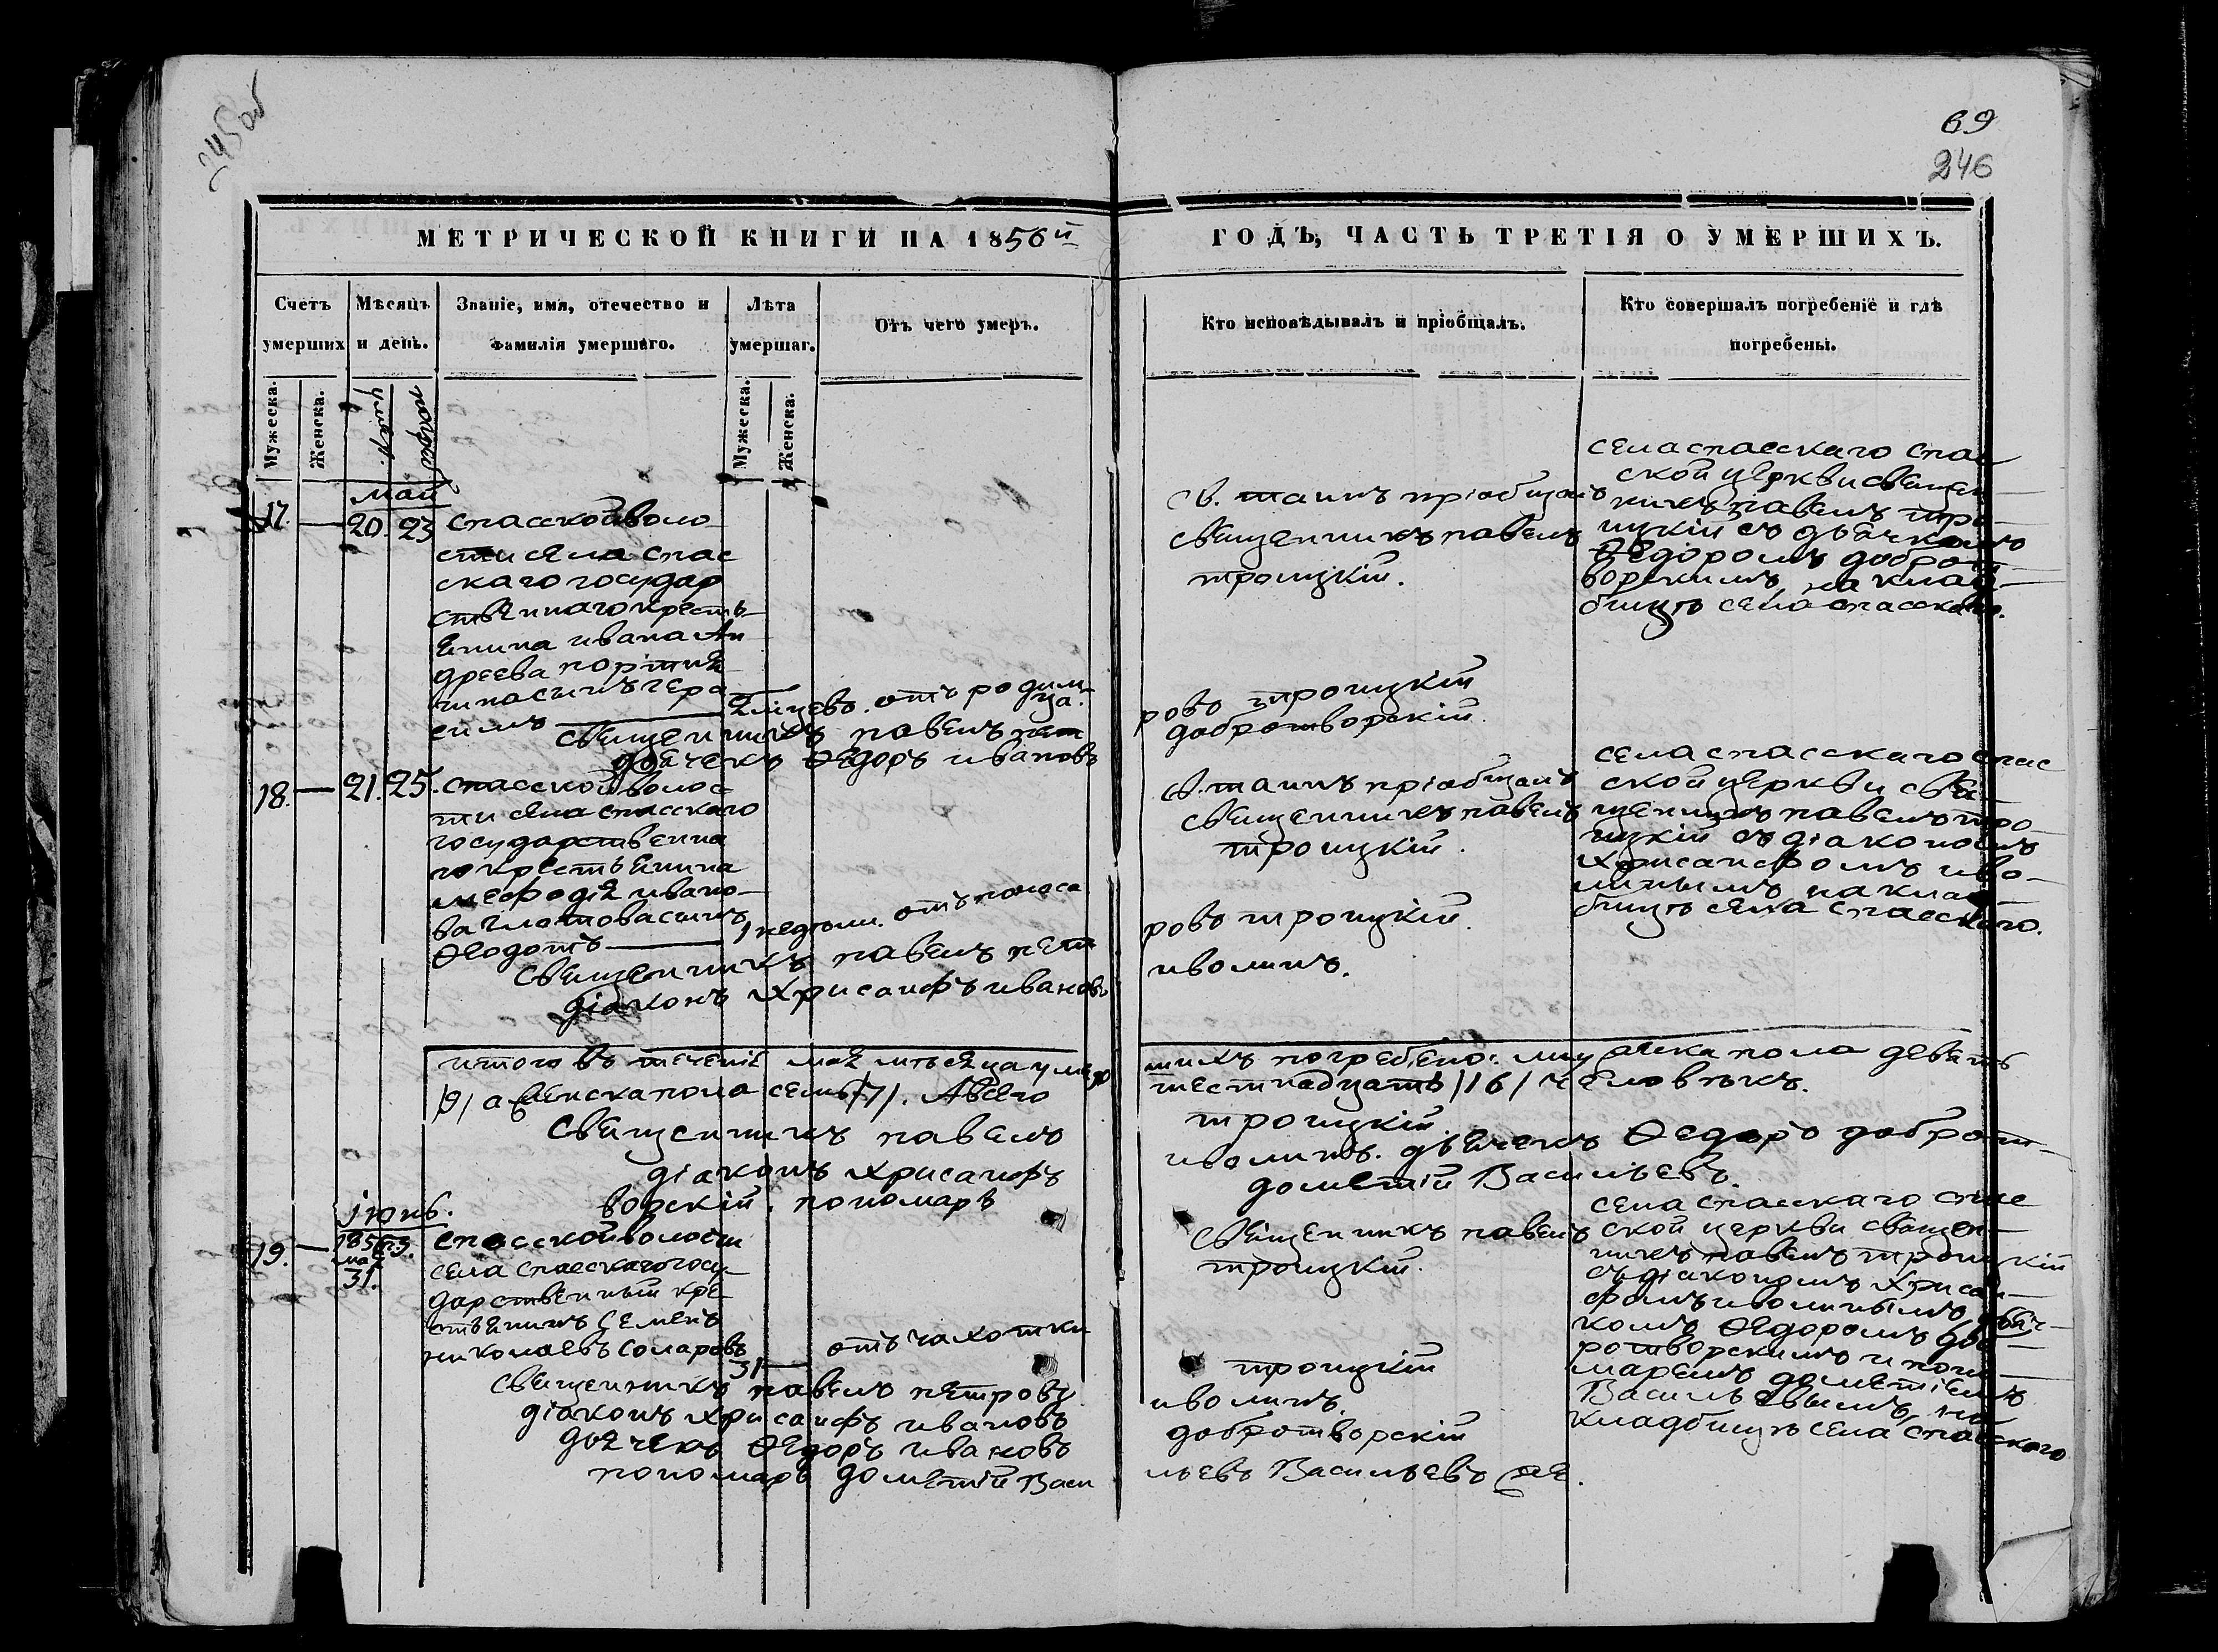 245об
69
246
МЕТРИЧЕСКОЙ КНИГИ НА 1856й
ГОДЪ, ЧАСТЬ ТРЕТІЯ О УМЕРШИХЪ.
Счетъ умерших
Мѣсяцъ и день.
Званіе, имя, отечество и фамилія умершаго.
Лѣта умершаг.
Отъ чего умеръ.
Кто исповѣдывалъ и пріобщалъ.
Кто совершалъ погребеніе и гдѣ погребены.
Мужеска.
Женска.
Мужеска.
Женска.
май
17. — 20. 23
спасской воло
сти села спас
скаго государ
ственнаго кресть
янина ивана Ан
дреева
сынъ гера
симъ
2 мцевъ. отъ родим
ца.
св. таинъ пріобщалъ
священникъ павелъ
троицкій.
села спасскаго спас
ской церкви священ
никъ павелъ тро
ицкій съ дьячкомъ
Ѳедоромъ доброт
ворскимъ на клад
бищѣ села спасскаго.
священникъ павелъ пет
ровъ троицкій
дьячекъ Ѳедоръ ивановъ
добротворскій.
18. — 21. 25.
спасской волос
ти села спасскаго
государственна
го крестьянина
мефодія ивано
ва глотова сынъ
Ѳеодотъ
1 недѣли. отъ поноса
св. таинъ пріобщалъ
священникъ павелъ
троицкій.
села спасскаго спас
ской церкви свя
щеникъ павелъ тро
ицкій съ діакономъ
Хрисанфомъ иво
линымъ на клад
бищѣ села спасскаго.
священникъ павелъ пет
ровъ троицкій.
діаконъ Хрисанфъ ивановъ
иволинъ.
итого въ теченіе мая мѣсяца умер
шихъ погребено: мужеска пола девять
/9/ а женска пола семь /7/. А всего
шестнадцать /16/ человѣкъ.
священникъ павелъ
троицкій.
діаконъ Хрисанфъ
иволинъ. дьячекъ Ѳедоръ доброт
ворскій. пономарь
дометій Васильевъ.
іюнь.
19. — 1856 3.
мая
31.
спасской волости
села спасскаго госу
дарственный кре
стьянинъ Семенъ
николаевъ
31 — отъ чахотки
Священникъ павелъ
троицкій.
села спасскаго спас
ской церкви священ
никъ павелъ троицкій
съ діакономъ Хрисан
фомъ иволинымъ дьяч
комъ Ѳедоромъ доб
ротворскимъ и поно
маремъ дометіемъ
Васильевымъ, на
кладбищѣ села спасскаго
священникъ павелъ петровъ
троицкій
діаконъ Хрисанфъ ивановъ
иволинъ.
дьячекъ Ѳедоръ ивановъ
добротворскій
пономарь дометій Васи
льевъ Васильевъ